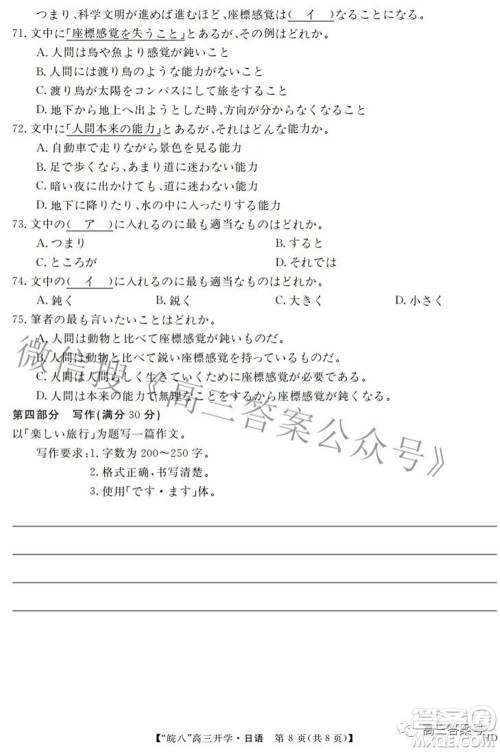 つまり、科学文明が進めば進むほど、座標感覚が＿(　イ　)＿なることになる。
71. 文中に「座標感覚を失うこと」とあるが、その例はどれか。
A. 人間は鳥や魚より感覚が鈍いこと
B. 人間には渡り鳥のような能力がないこと
C. 渡り鳥が太陽をコンパスにして旅をすること
D. 地下から地上へ出ようとした時、方向が分からなくなること
72. 文中に「人間本来の能力」とあるが、それはどんな能力か。
A. 自動車で走りながら景色を見る能力
B. 足で歩くと、あまり道に迷わない能力
C. 暗い夜に出かけても、道に迷わない能力
D. 地下に降りたり、水の中に入ったりする能力
73. 文中の＿(　ア　)＿に入れるのに最も適当なものはどれか。
A. つまり　B. すると
C. ところが　D. それでは
74. 文中の＿(　イ　)＿に入れるのに最も適当なものはどれか。
A. 鈍く　B. 鋭く　C. 大きく　D. 小さく
75. 筆者の最も言いたいことはどれか。
A. 人間は動物と比べて座標感覚が鈍いものだ。
B. 人間は動物と比べて鋭い座標感覚を持っているものだ。
C. 人間がより良く生きていくために座標感覚が必要である。
D. 人間は本来の能力で無理なく座標感覚が保てるものだ。
第四部分　写作(满分 30 分)
以「楽しい旅行」为题写一篇作文。
写作要求：1. 字数为 200～250 字。
2. 格式正确，书写清楚。
3. 使用「です・ます」体。
微信搜《高三答案公众号》
【“皖八”高三开学・日语　第 8 页(共 8 页)】
高三答案号
HD